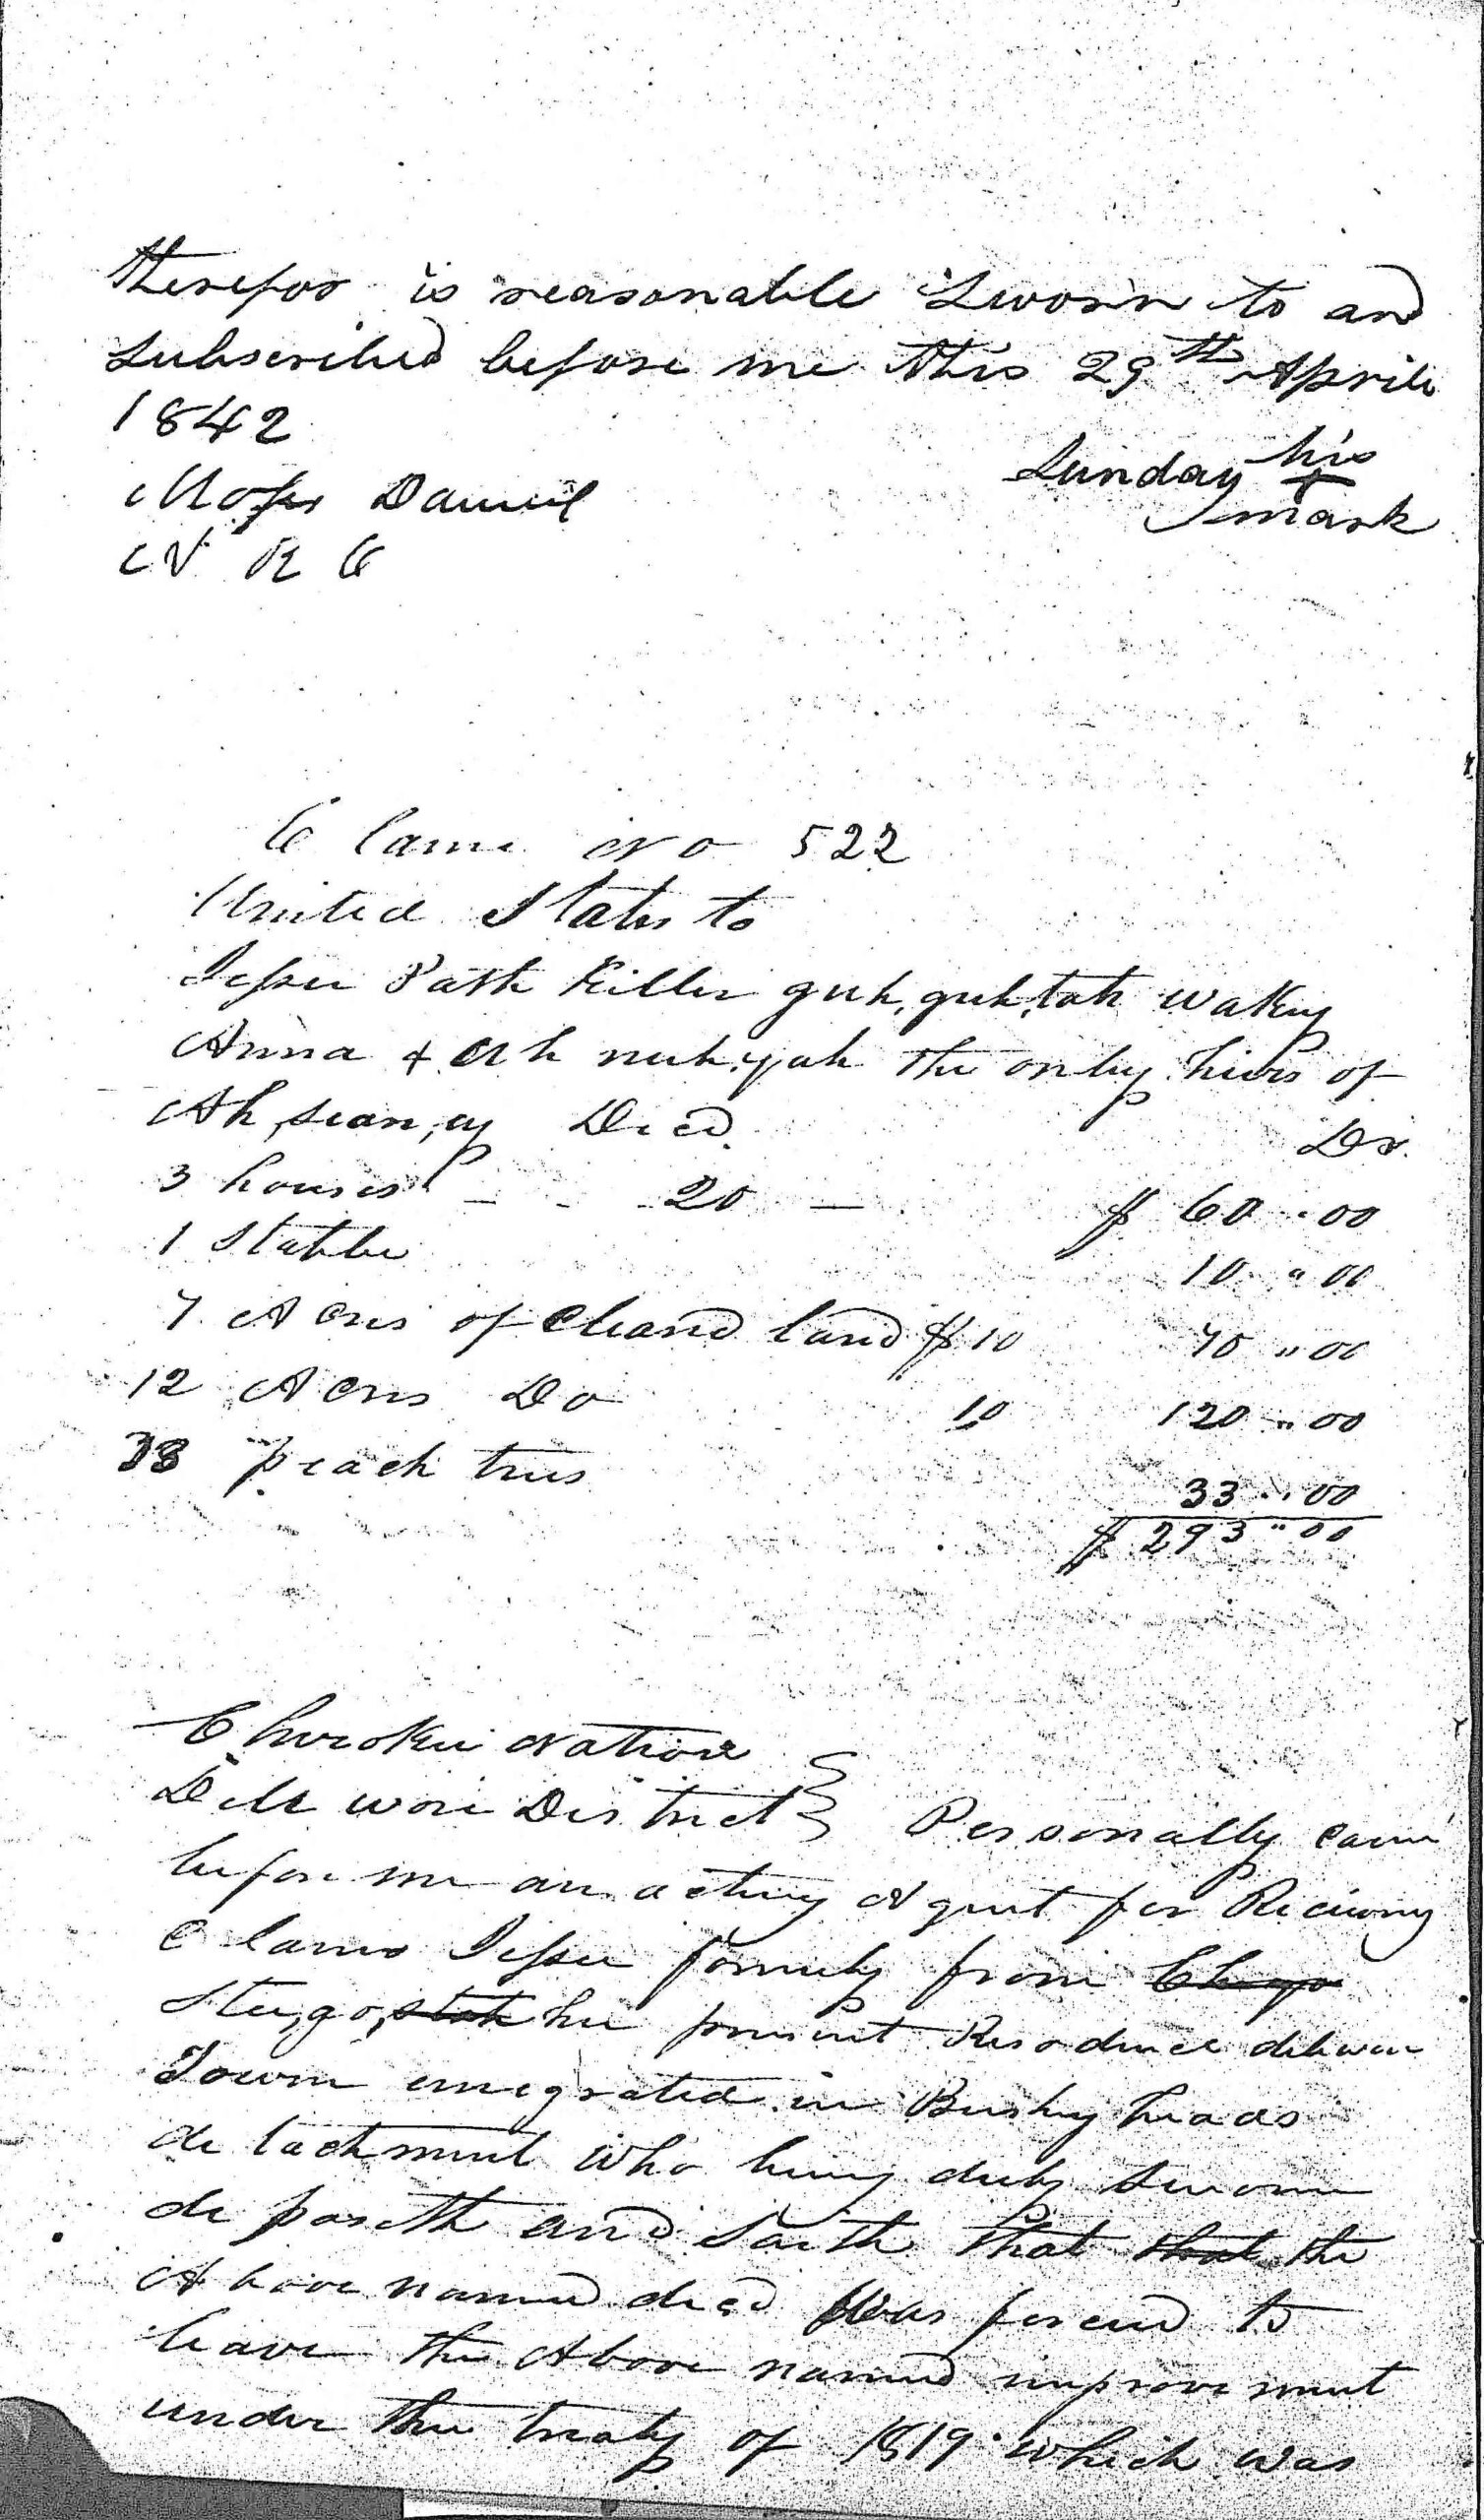 therefor is reasonable Sworn to and
Subscribed before me this 29th April
1842
Sunday his
+
mark
Moses Daniel
N R C
Clame No 522
United States to
Jesse Path Killer guh,guh,tah waky
Anna + Ah nuh,yah the only hiers of
Ah,sean,ey Decd.
Dr.
3 houses - - 20 — $ 60 .. 00
1 Stable 10 " 00
7 Acres of Cleard land $ 10 70 " 00
12 Acres Do 10 120 " 00
33 peach trees 33 .. 00
$ 293 " 00
Cherokee Nation
Dellwore District Personally came
before me an acting Agent for Reciving
Clams Jesse formerly from
Stee,go, his present Residence
Town emegrated in Bushy heads
detachment who being duly sworn
deposeth and Saith that that the
Above named decd Was forced to
leave the Above named improvement
under the treaty of 1819 which was